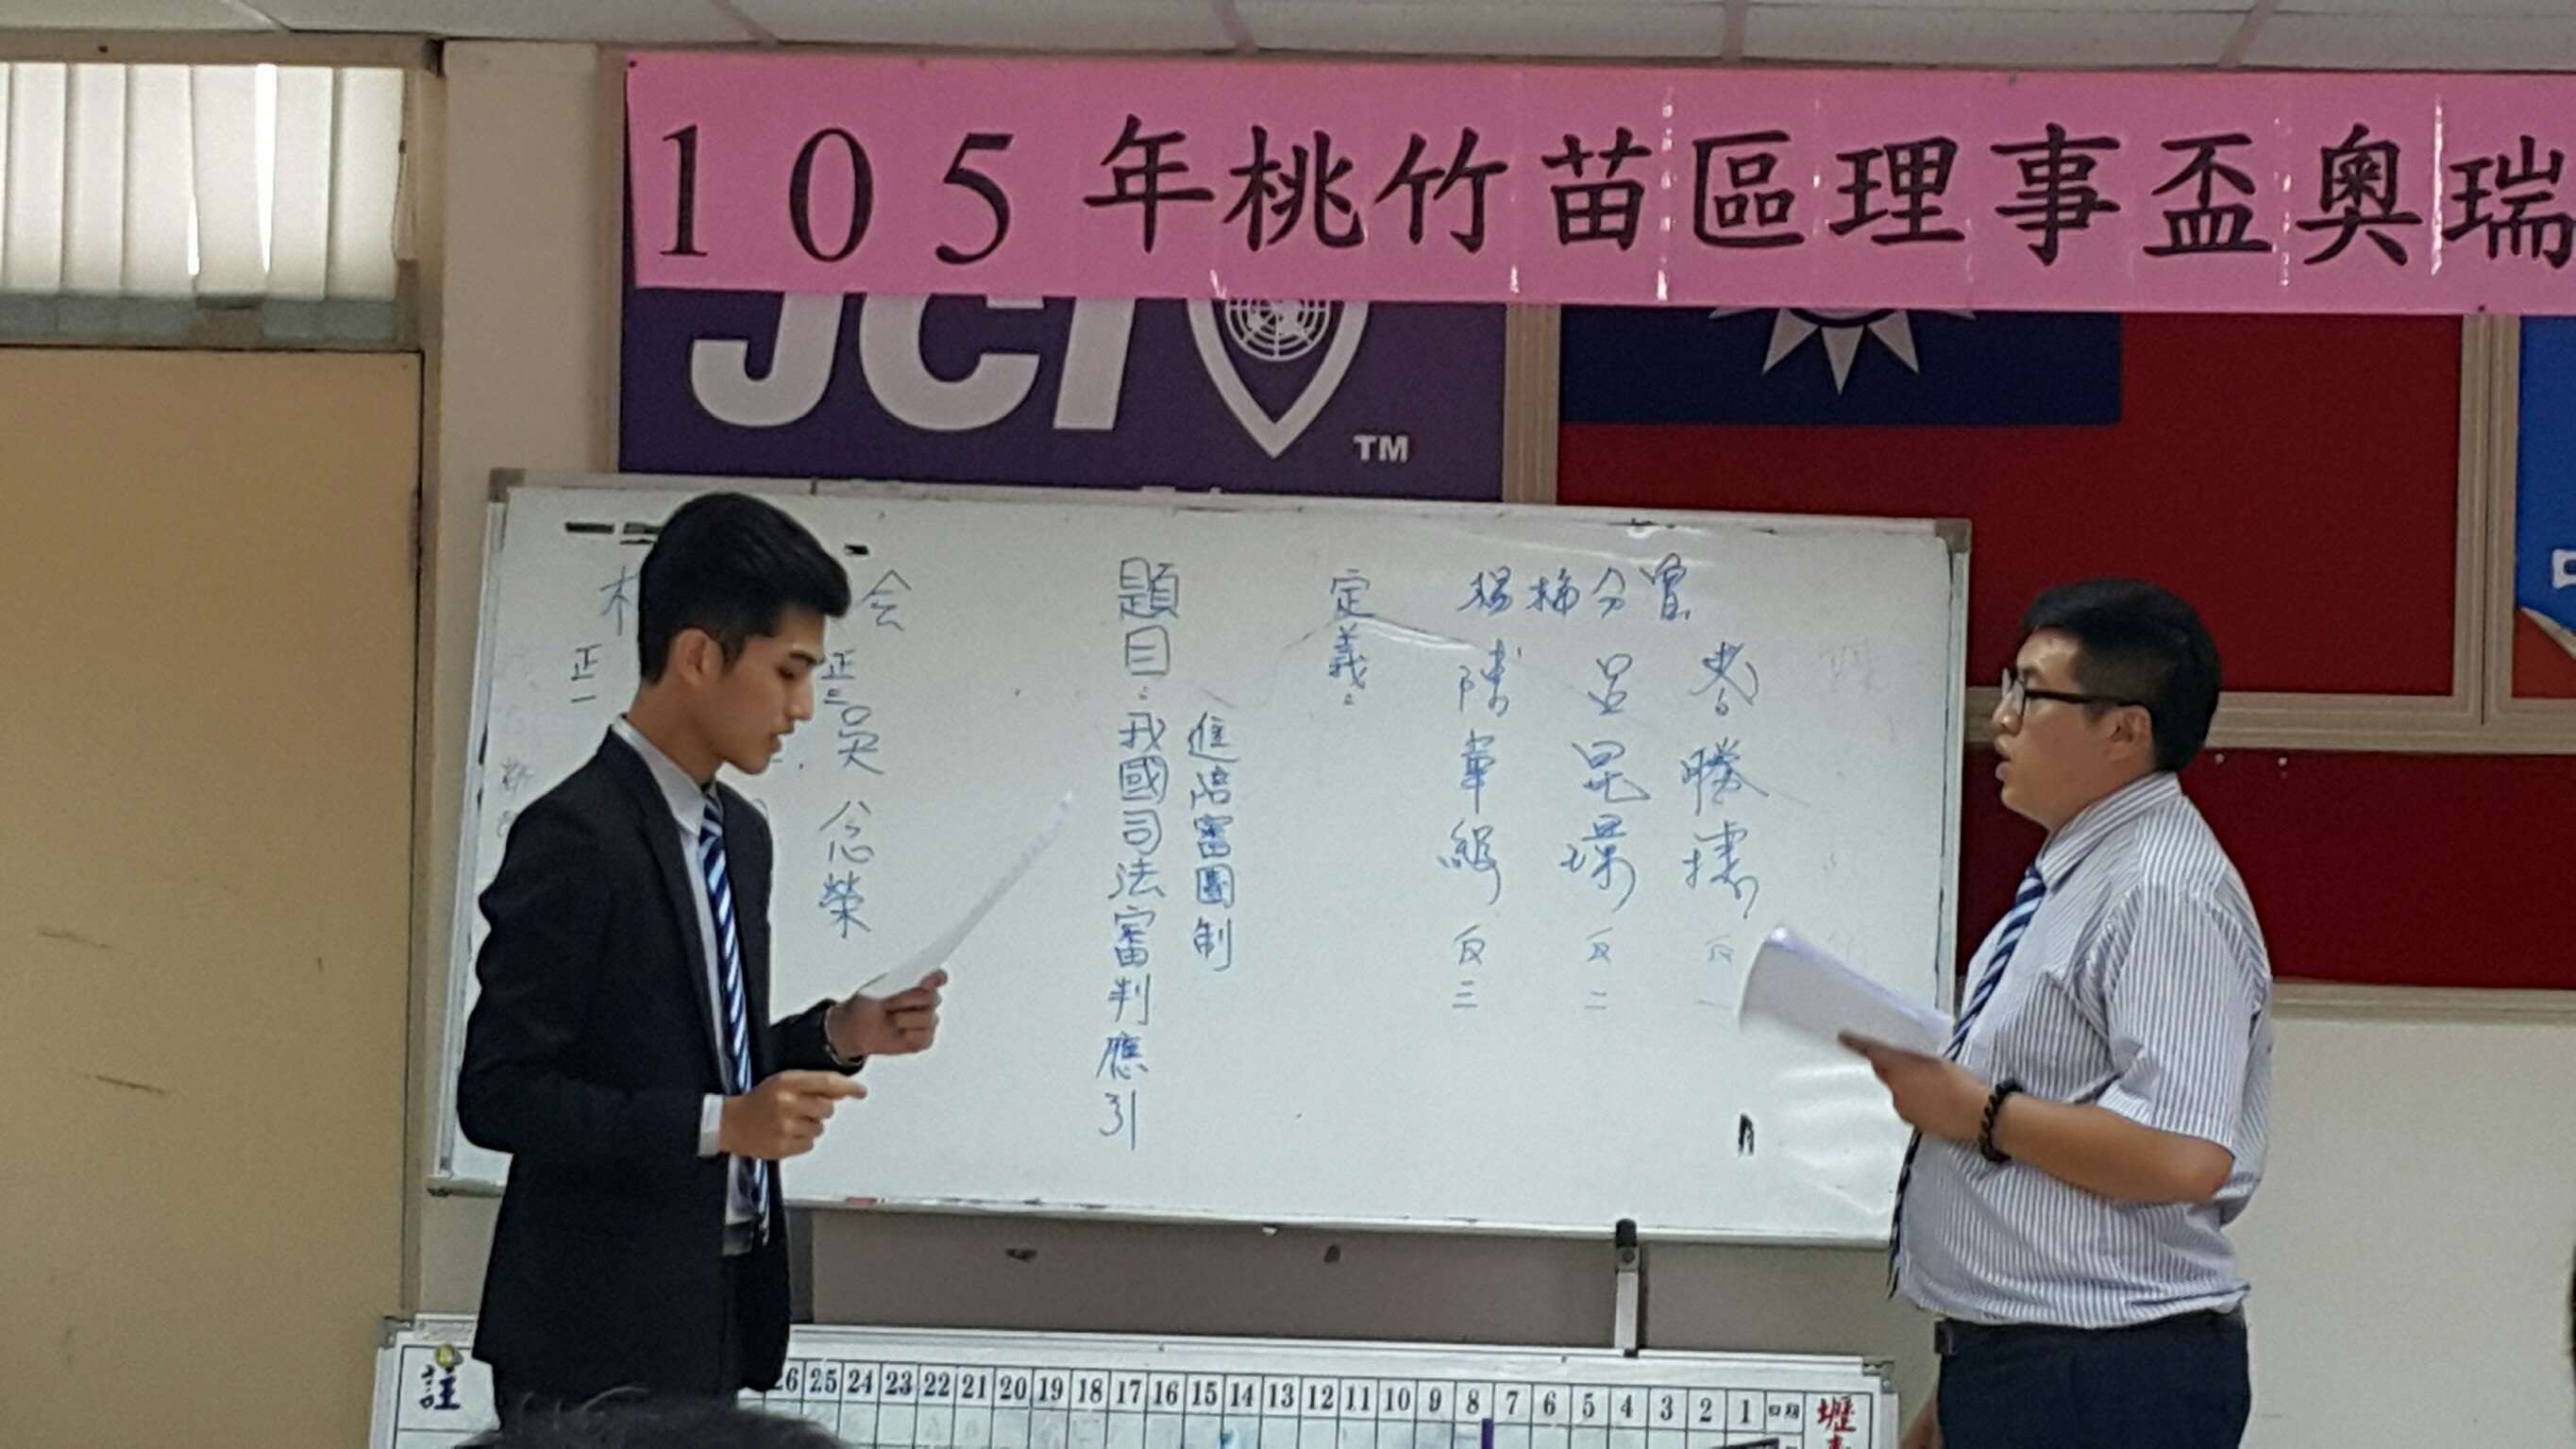 105年桃竹苗區理事盃奧瑞
JCI
TM
会
正一
正三 吳念榮
題目：我國司法審判應引
進陪審團制
定義：
楊梅分會
反一
呂昆璟 反二
反三
註
25 24 23 22 21 20 19 18 17 16 15 14 13 12 11 10 9 8 7 6 5 4 3 2 1 日期
壢